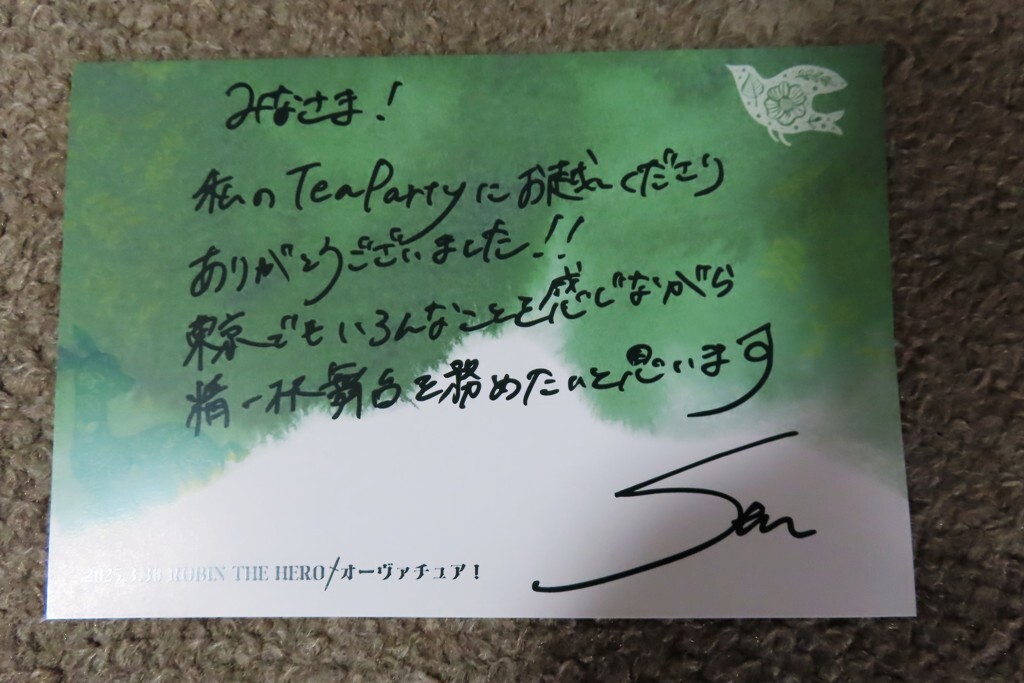 みなさま!
私の TeaParty にお越しくださり
ありがとうございました!!
東京でもいろんなことを感じながら
精一杯舞台を務めたいと思います
San
2025.3.30 ROBIN THE HERO/オーヴァチュア!